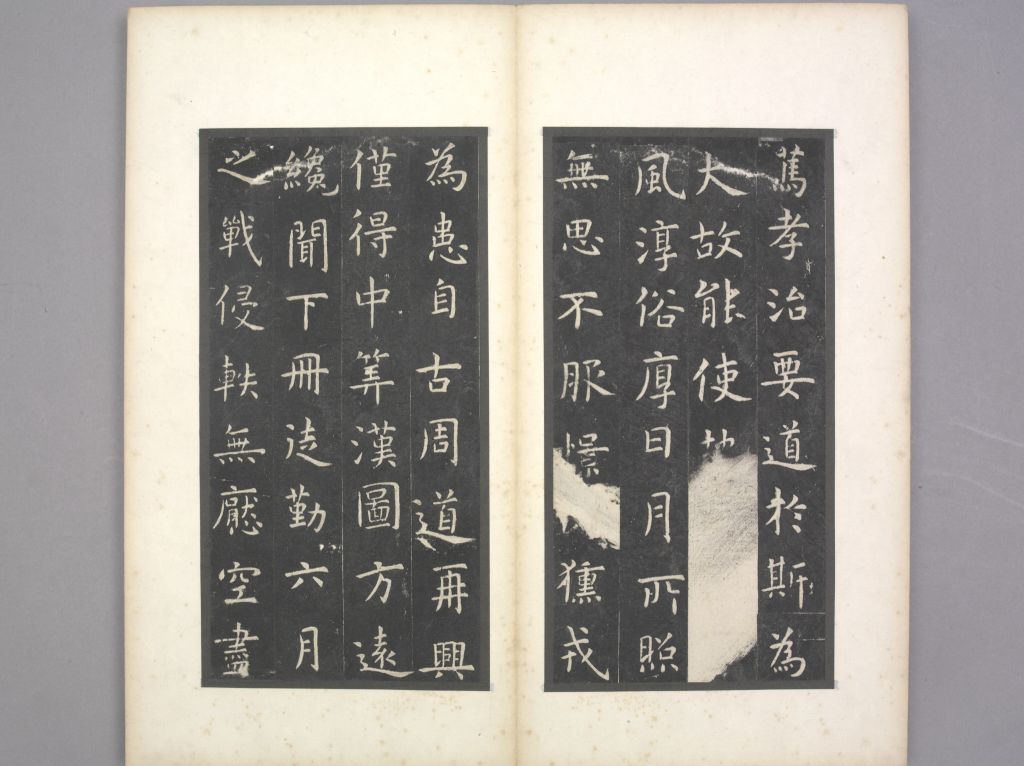 篤孝治要道於斯為
大故能使
風淳俗厚日月所照
無思不服憬獯戎
為患自古周道再興
僅得中筭漢圖方遠
纔聞下冊徒勤六月
之戰侵軼無厭空盡